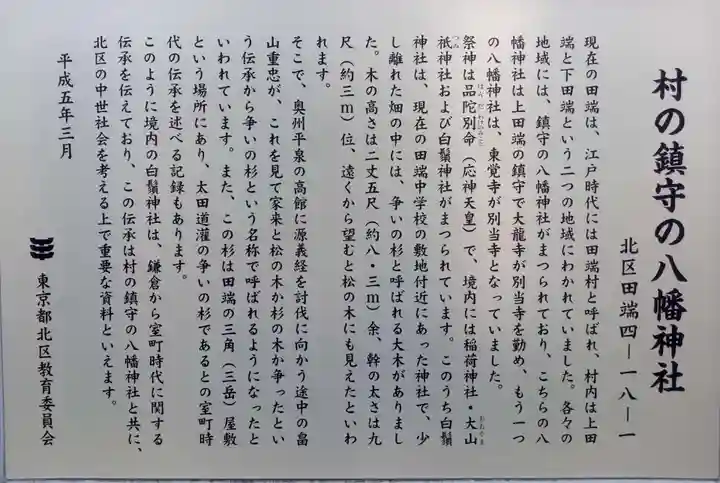 村の鎮守の八幡神社
北区田端四ー一八ー一
現在の田端は、江戸時代には田端村と呼ばれ、村内は上田
端と下田端という二つの地域にわかれていました。各々の
地域には、鎮守の八幡神社がまつられており、こちらの八
幡神社は上田端の鎮守で大龍寺が別当寺を勤め、もう一つ
の八幡神社は、東覚寺が別当寺となっていました。
祭神は品陀別命（応神天皇）で、境内には稲荷神社・大山
祇神社および白鬚神社がまつられています。このうち白鬚
神社は、現在の田端中学校の敷地付近にあった神社で、少
し離れた畑の中には、争いの杉と呼ばれる大木がありまし
た。木の高さは二丈五尺（約八・三ｍ）余、幹の太さは九
尺（約三ｍ）位、遠くから望むと松の木にも見えたといわ
れます。
そこで、奥州平泉の高館に源義経を討伐に向かう途中の畠
山重忠が、これを見て家来と松の木か杉の木か争ったとい
う伝承から争いの杉という名称で呼ばれるようになったと
いわれています。また、この杉は田端の三角（三岳）屋敷
という場所にあり、太田道灌の争いの杉であるとの室町時
代の伝承を述べる記録もあります。
このように境内の白鬚神社は、鎌倉から室町時代に関する
伝承を伝えており、この伝承は村の鎮守の八幡神社と共に、
北区の中世社会を考える上で重要な資料といえます。
平成五年三月
東京都北区教育委員会